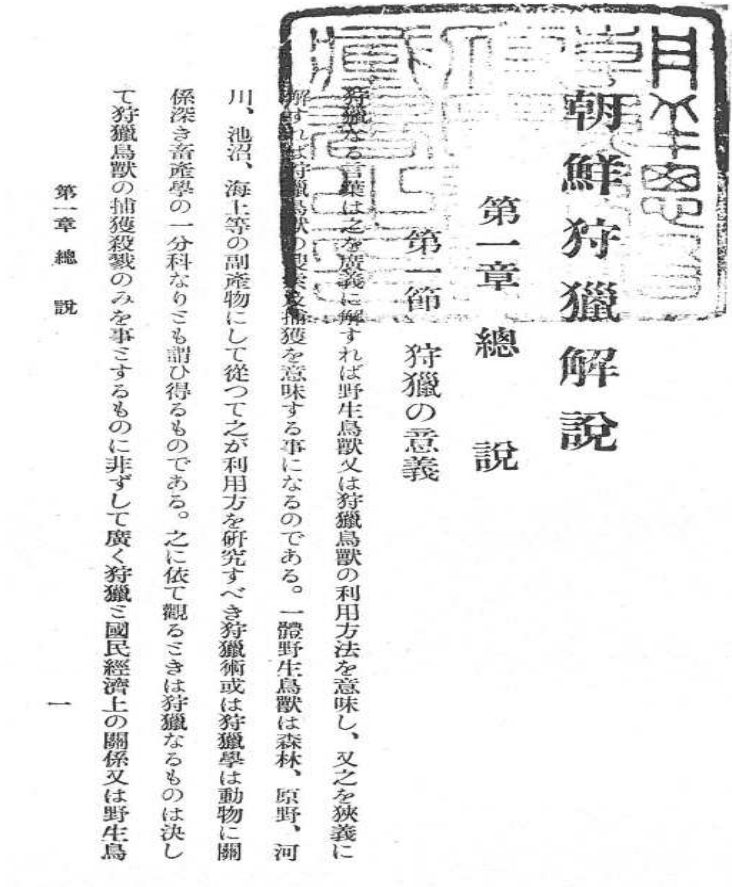 朝鮮狩獵解說
第一章 總 說
第一節 狩獵の意義
狩獵なる言葉は之を廣義に解すれば野生鳥獸又は狩獵鳥獸の利用方法を意味し、又之を狹義に
解すれば狩獵鳥獸の搜索及捕獲を意味する事になるのである。一體野生鳥獸は森林、原野、河
川、池沼、海上等の副產物にして從つて之が利用方を硏究すべき狩獵術或は狩獵學は動物に關
係深き畜產學の一分科なりとも謂ひ得るものである。之に依て觀るときは狩獵なるものは決し
て狩獵鳥獸の捕獲殺戮のみを事とするものに非ずして廣く狩獵と國民經濟上の關係又は野生鳥
第一章 總 說
一